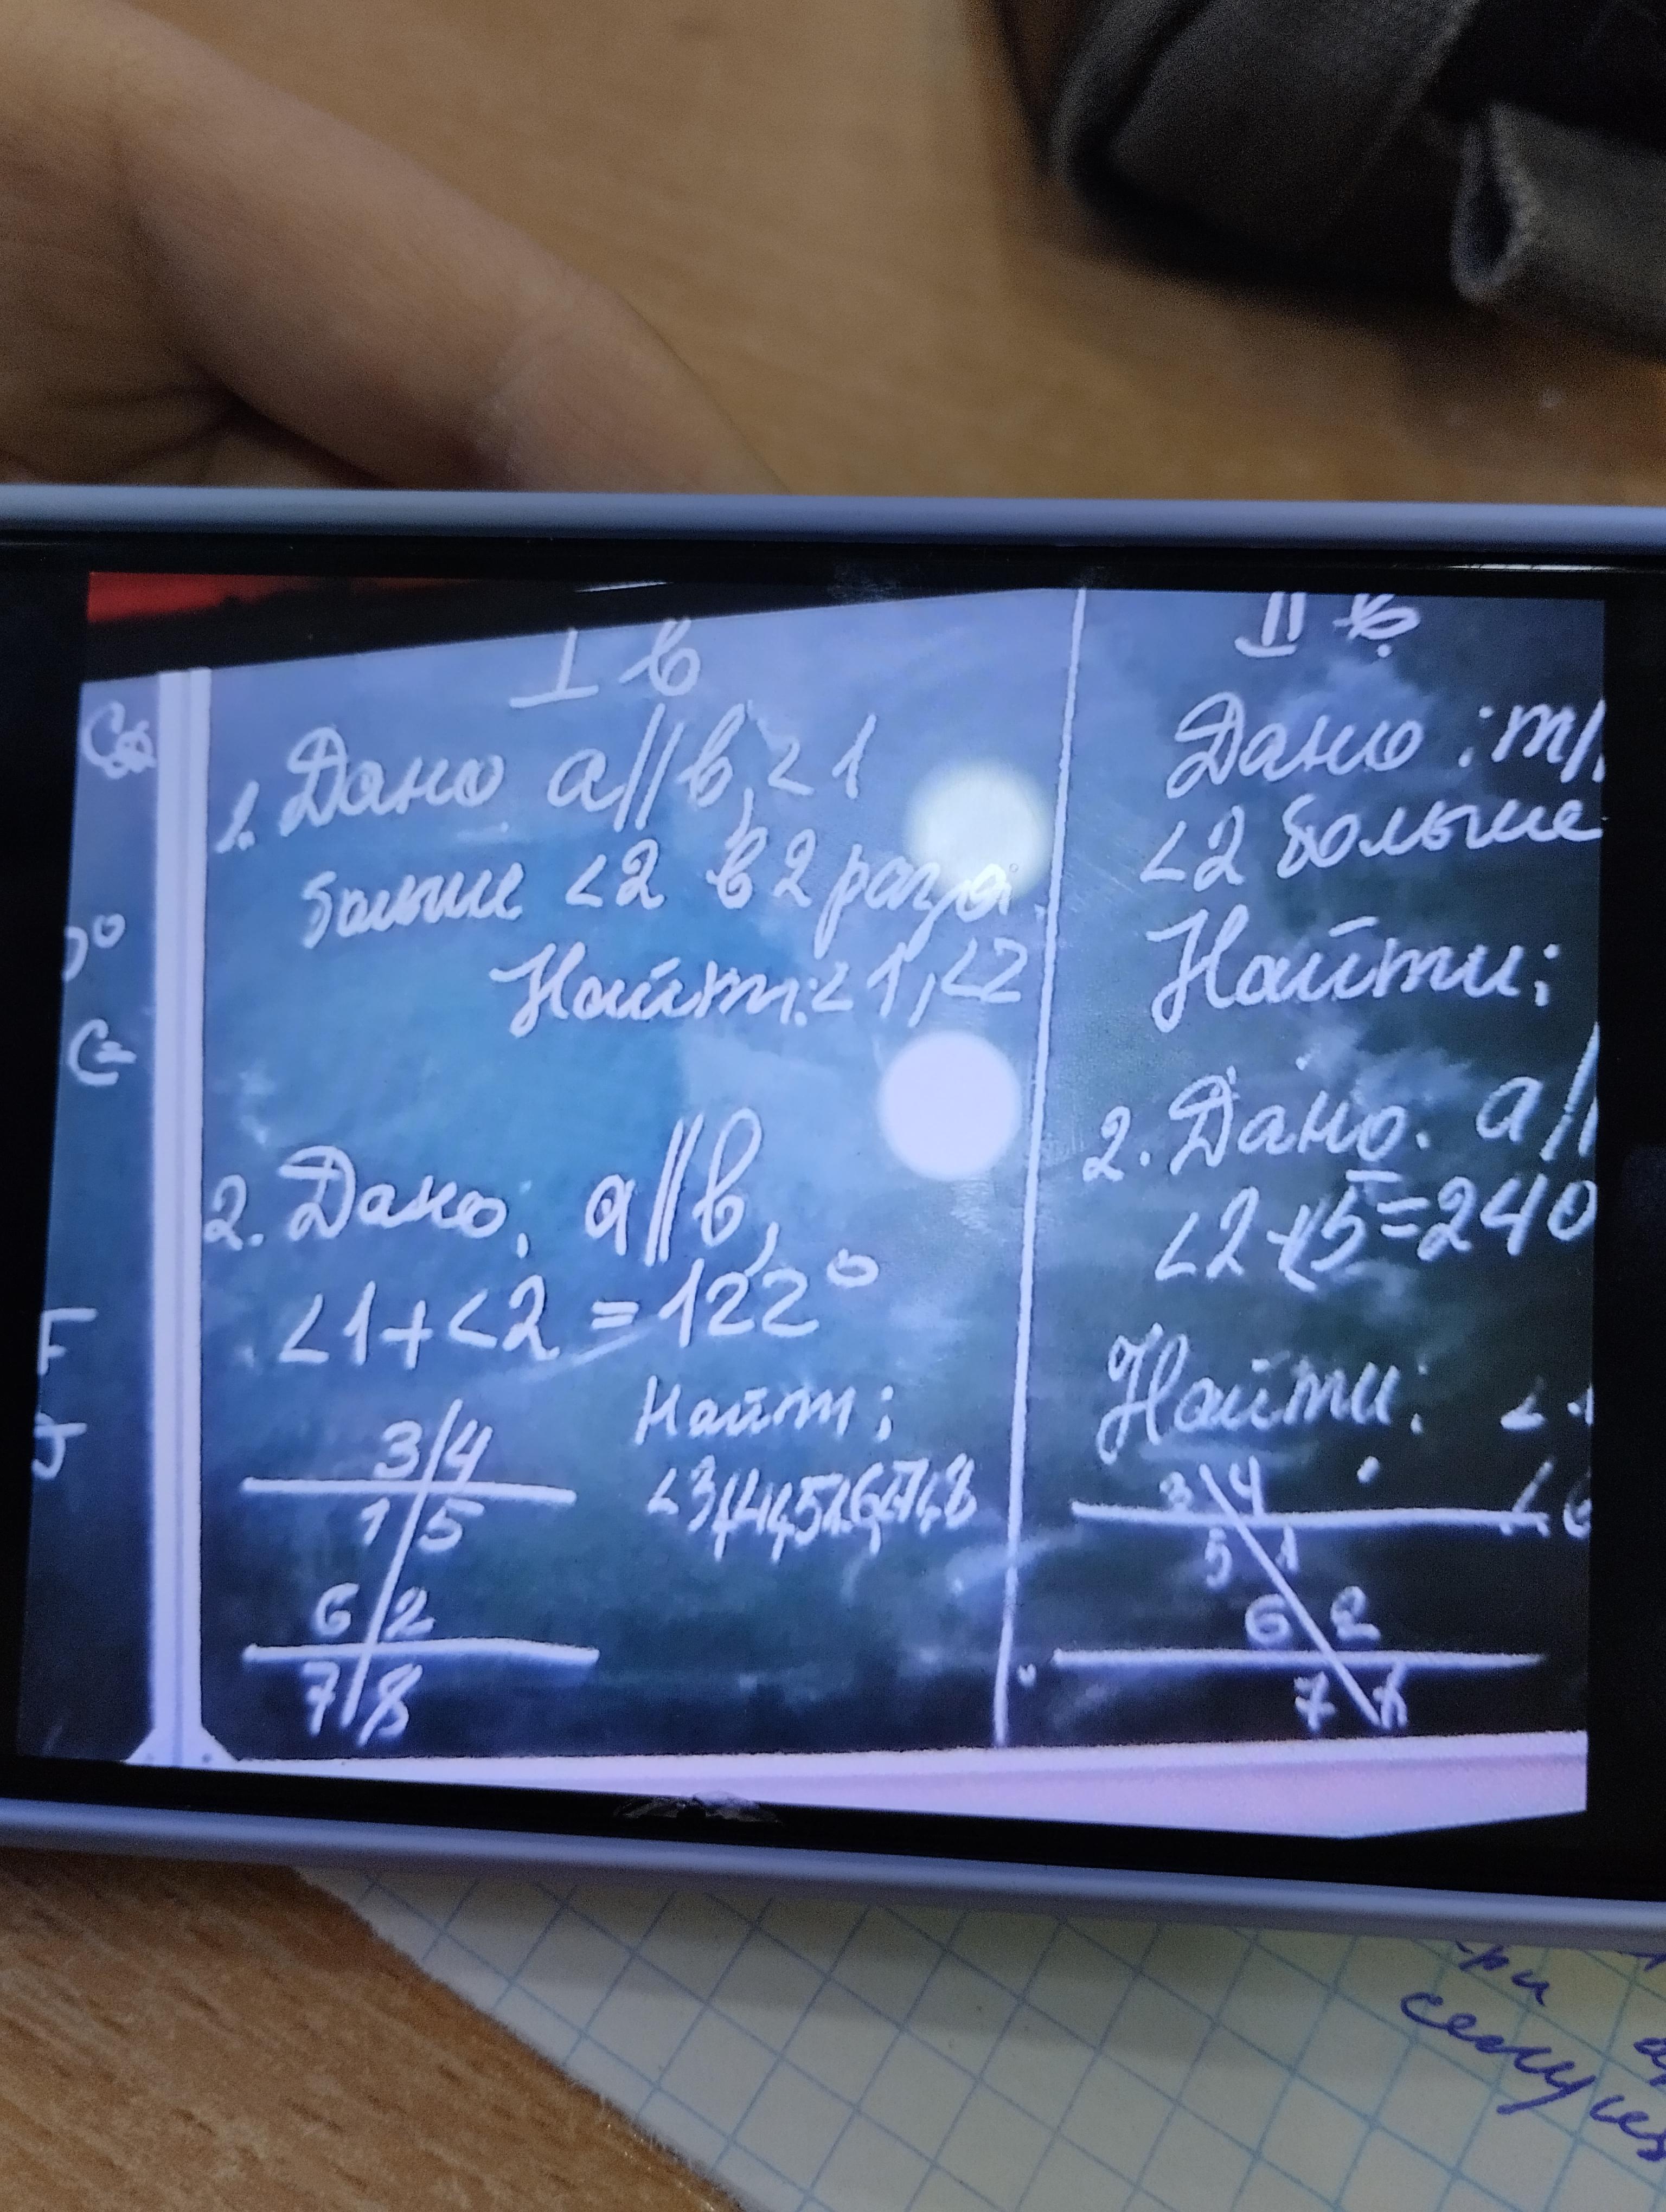 I в
1. Дано a||b, <1
больше <2 в 2 раза.
Найти: <1, <2
2. Дано. a||b,
<1+<2 = 122°
Найти:
<3,<4,<5,<6,<7,<8
3 4
1 5
6 2
7 8
II в
Дано: m||
<2 больше
Найти:
2. Дано. a||
<2+<5=240
Найти: <1
<6
3 4
5 1
6 2
7
F
ри